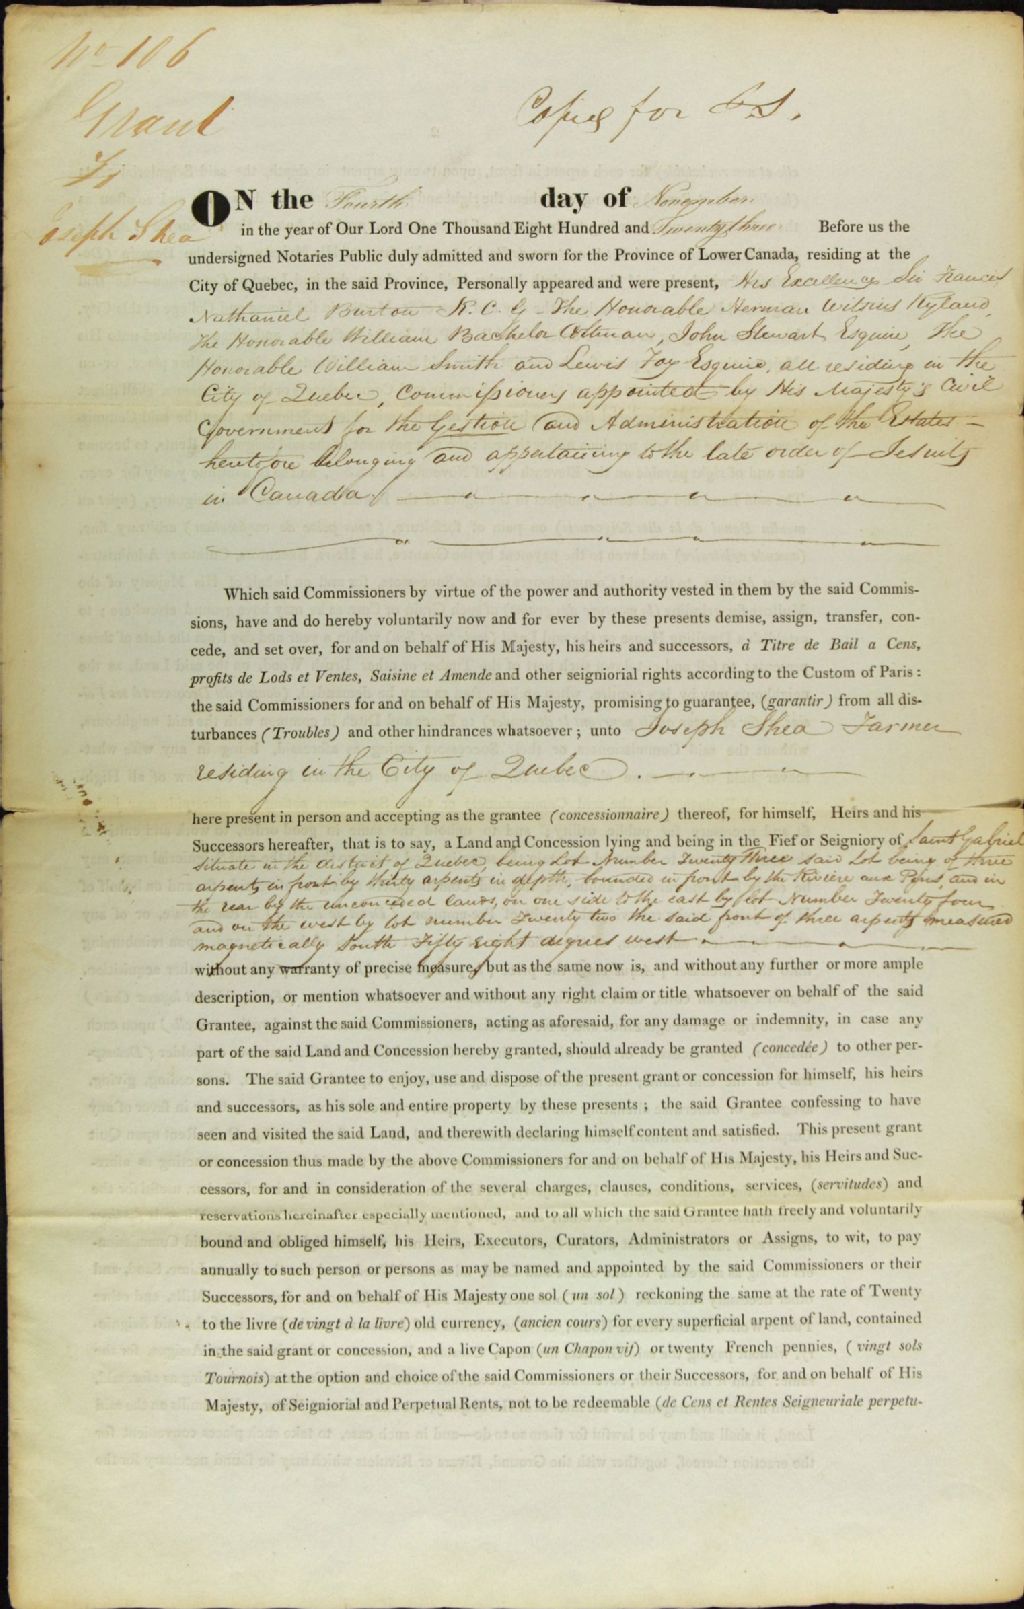 No 106
Grant
To
Joseph Shea
Copied for
ON the Fourth day of November
in the year of Our Lord One Thousand Eight Hundred and Twenty three Before us the
undersigned Notaries Public duly admitted and sworn for the Province of Lower Canada, residing at the
City of Quebec, in the said Province, Personally appeared and were present, His Excellency Sir Francis
Nathaniel Burton K. C. G. The Honorable Herman Witsius Ryland,
The Honorable William Bachelor Coltman, John Stewart Esquire, The
Honorable William Smith and Lewis Foy Esquire, all residing in the
City of Quebec, Commissioners appointed by His Majesty's Civil
Government for the Gestion and Administration of the Estates
heretofore belonging and appertaining to the late order of Jesuits
in Canada.
Which said Commissioners by virtue of the power and authority vested in them by the said Commis-
sions, have and do hereby voluntarily now and for ever by these presents demise, assign, transfer, con-
cede, and set over, for and on behalf of His Majesty, his heirs and successors, à Titre de Bail a Cens,
profits de Lods et Ventes, Saisine et Amende and other seigniorial rights according to the Custom of Paris:
the said Commissioners for and on behalf of His Majesty, promising to guarantee, (garantir) from all dis-
turbances (Troubles) and other hindrances whatsoever; unto Joseph Shea Farmer
residing in the City of Quebec.
here present in person and accepting as the grantee (concessionnaire) thereof, for himself, Heirs and his
Successors hereafter, that is to say, a Land and Concession lying and being in the Fief or Seigniory of Saint Gabriel
situate in the district of Quebec, being Lot Number Twenty Three said Lot being of three
arpents in front by thirty arpents in depth, bounded in front by the Rivière aux Pins, and in
the rear by the unconceded lands, on one side to the east by Lot Number Twenty four
and on the west by lot number Twenty two the said front of three arpents measured
magnetically South Fifty eight degrees west
without any warranty of precise measure, but as the same now is, and without any further or more ample
description, or mention whatsoever and without any right claim or title whatsoever on behalf of the said
Grantee, against the said Commissioners, acting as aforesaid, for any damage or indemnity, in case any
part of the said Land and Concession hereby granted, should already be granted (concedée) to other per-
sons. The said Grantee to enjoy, use and dispose of the present grant or concession for himself, his heirs
and successors, as his sole and entire property by these presents; the said Grantee confessing to have
seen and visited the said Land, and therewith declaring himself content and satisfied. This present grant
or concession thus made by the above Commissioners for and on behalf of His Majesty, his Heirs and Suc-
cessors, for and in consideration of the several charges, clauses, conditions, services, (servitudes) and
reservations hereinafter especially mentioned, and to all which the said Grantee hath freely and voluntarily
bound and obliged himself, his Heirs, Executors, Curators, Administrators or Assigns, to wit, to pay
annually to such person or persons as may be named and appointed by the said Commissioners or their
Successors, for and on behalf of His Majesty one sol (un sol) reckoning the same at the rate of Twenty
to the livre (de vingt à la livre) old currency, (ancien cours) for every superficial arpent of land, contained
in the said grant or concession, and a live Capon (un Chapon vif) or twenty French pennies, (vingt sols
Tournois) at the option and choice of the said Commissioners or their Successors, for and on behalf of His
Majesty, of Seigniorial and Perpetual Rents, not to be redeemable (de Cens et Rentes Seigneuriale perpetu-